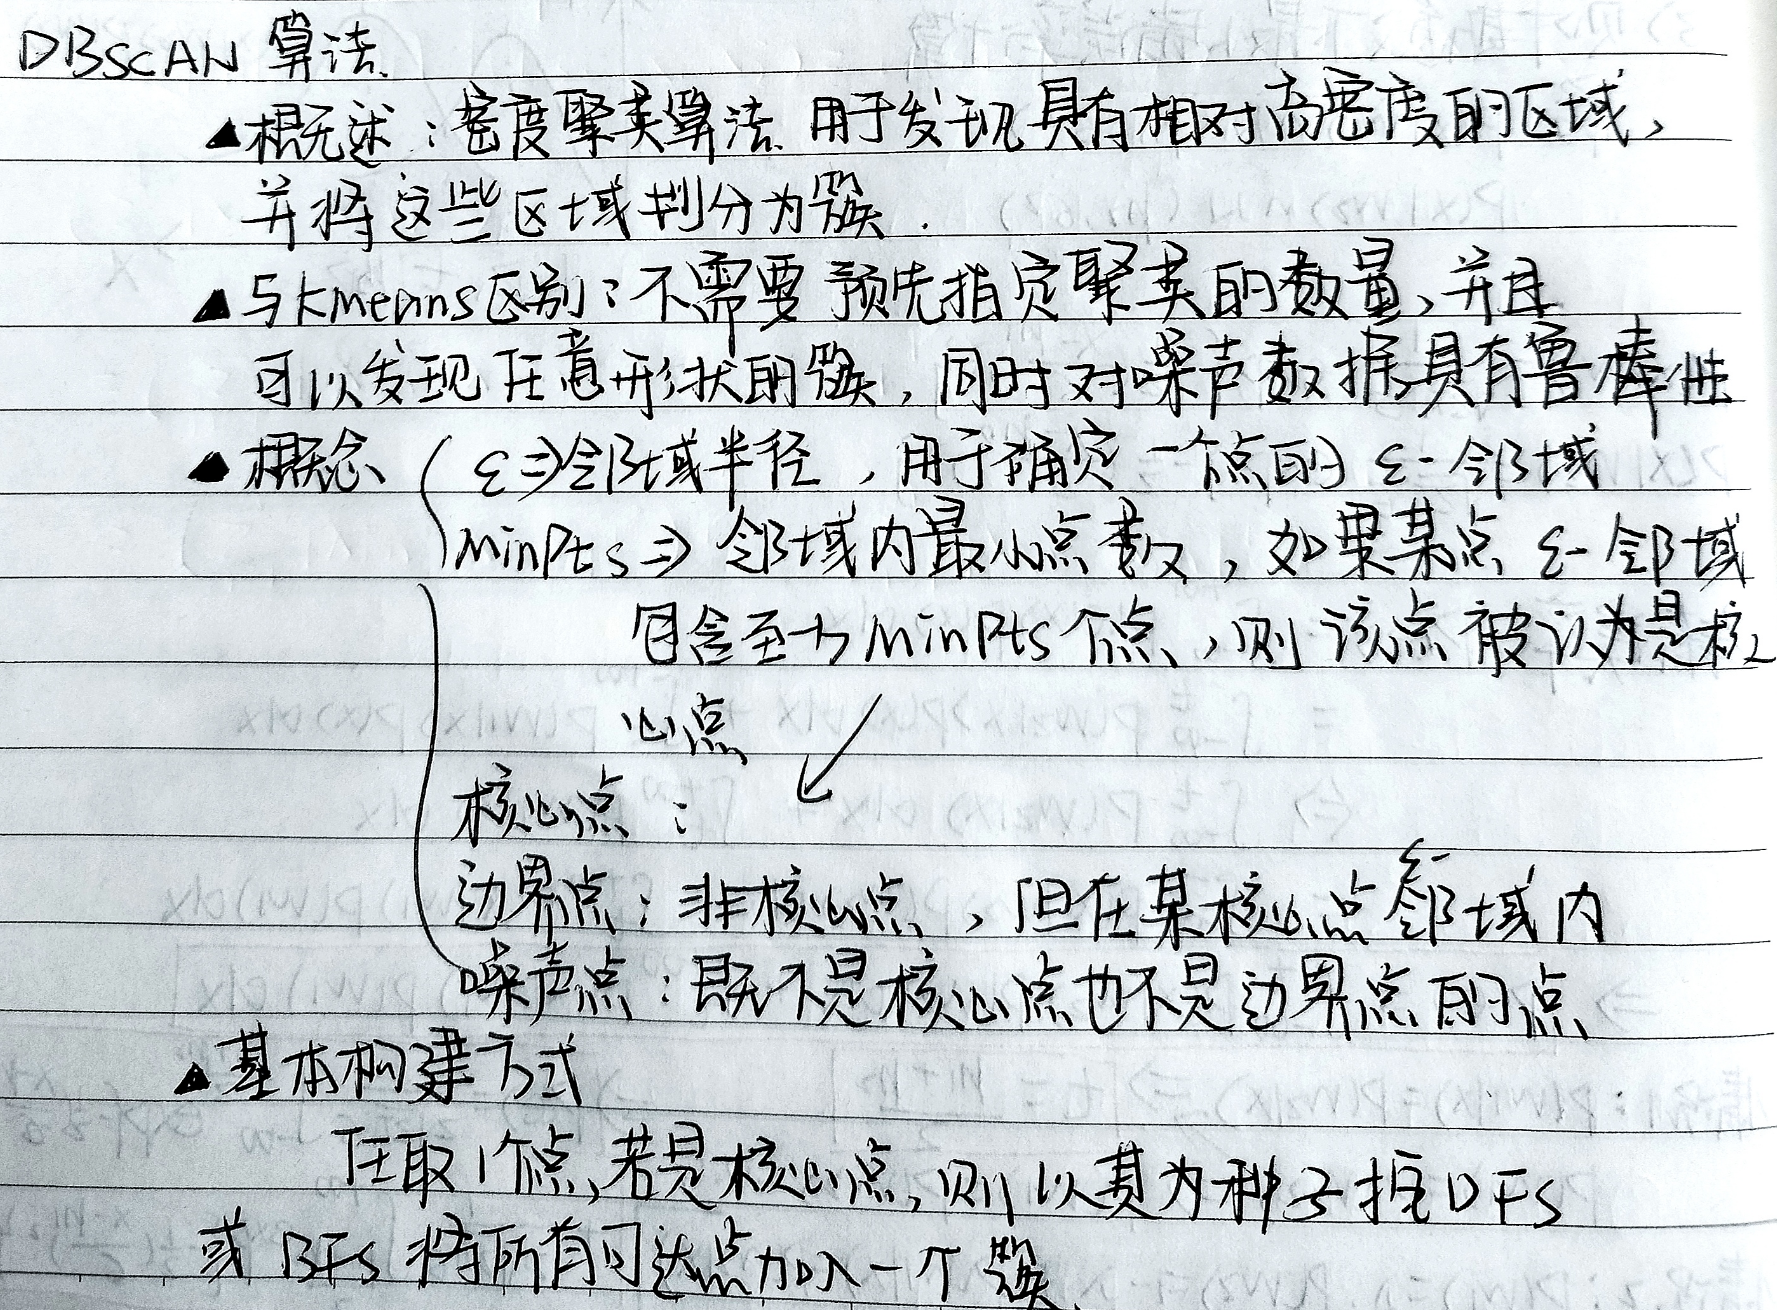 DBSCAN 算法
▲概述：密度聚类算法 用于发现具有相对高密度的区域，
并将这些区域划分为簇．
▲与kmeans区别：不需要预先指定聚类的数量，并且
可以发现任意形状的簇，同时对噪声数据具有鲁棒性
▲概念 ε⇒邻域半径，用于确定一个点的 ε-邻域
MinPts ⇒ 邻域内最小点数，如果某点 ε-邻域
包含至少MinPts个点，则该点被认为是核
心点
核心点：
边界点：非核心点，但在某核心点ε-邻域内
噪声点：既不是核心点也不是边界点的点
▲基本构建方式
任取1个点，若是核心点，则以其为种子 DFS
或 BFS 将所有可达点加入一个簇